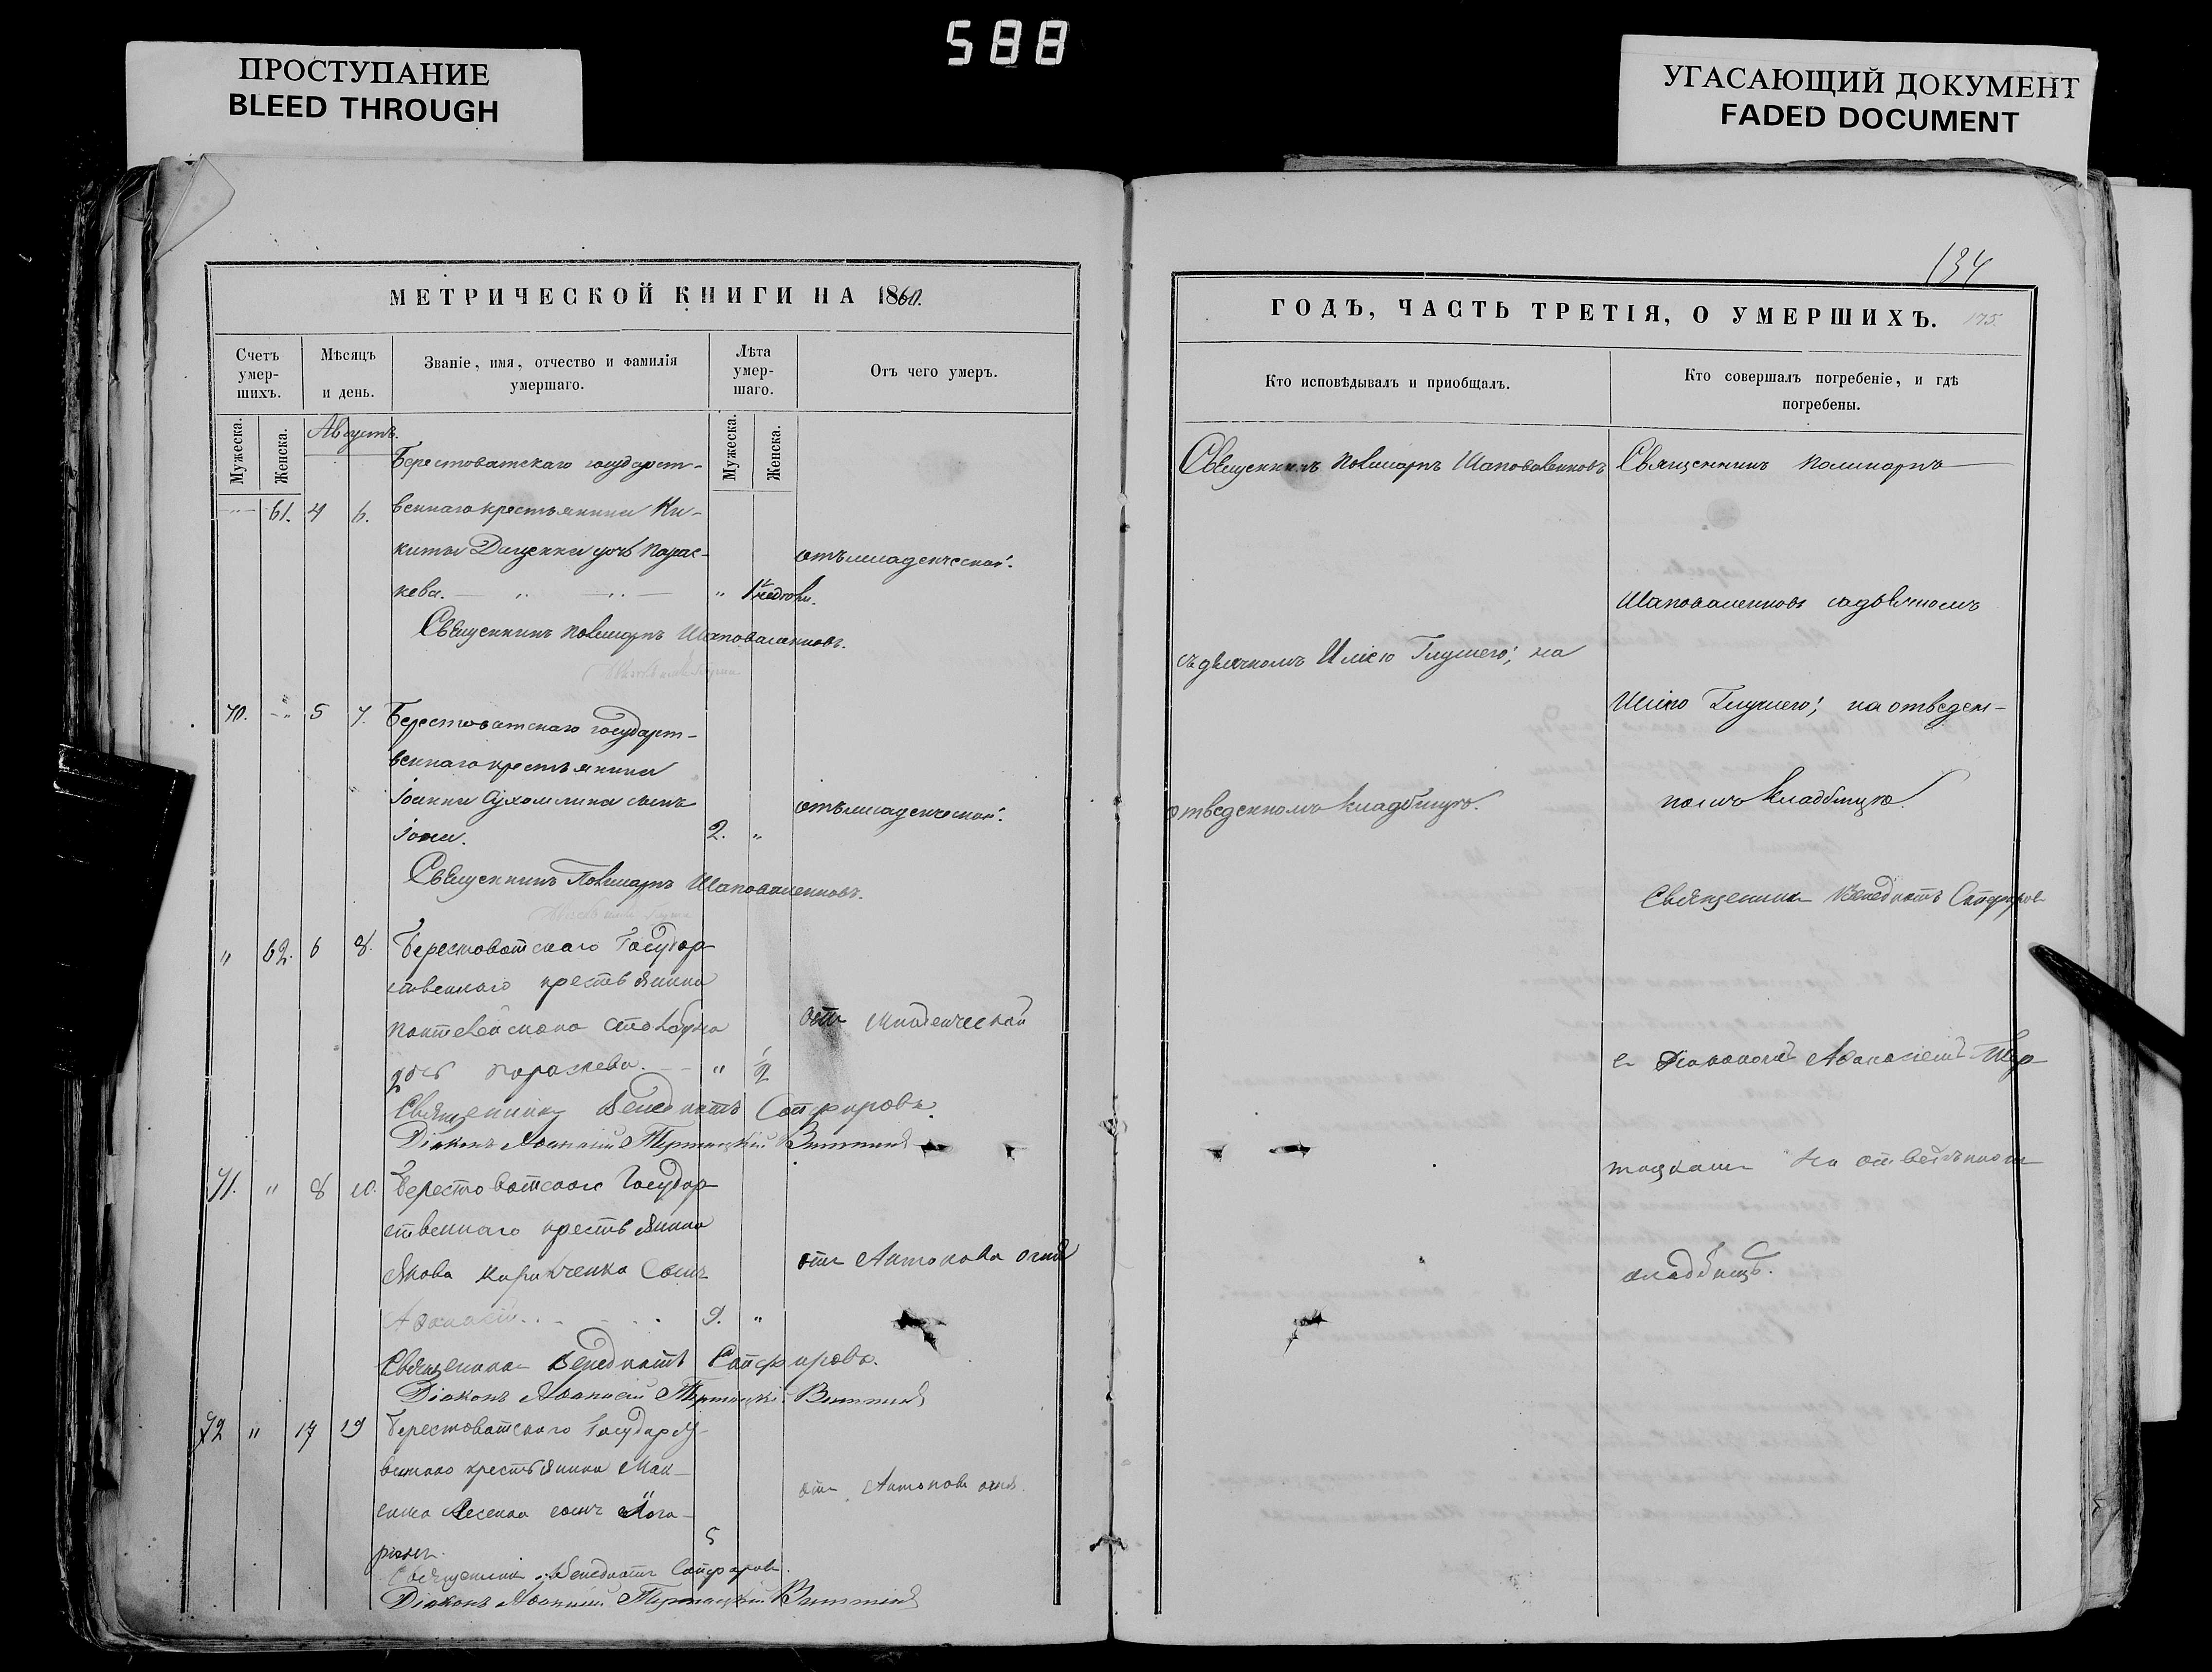 588
ПРОСТУПАНИЕ
BLEED THROUGH
УГАСАЮЩИЙ ДОКУМЕНТ
FADED DOCUMENT
МЕТРИЧЕСКОЙ КНИГИ НА 1860.
Счетъ умер-шихъ.
Мѣсяцъ и день.
Званіе, имя, отчество и фамилія умершаго.
Лѣта умер-шаго.
Отъ чего умеръ.
Мужеска.
Женска.
Мужеска.
Женска.
Августъ.
Берестоватскаго государст-
61. 4 6. веннаго крестьянина Ни-
киты Диценка дочь Парас-
кева. отъ младенческой.
Священникъ Поликарпъ Шаповаленковъ.
70. 5 7. Берестоватскаго государст-
веннаго крестьянина
Іоанна Сухомлина сынъ
Іона. 2. " отъ младенческой.
Священникъ Поликарпъ Шаповаленковъ.
" 62. 6 8. Берестоватскаго Государ
ственнаго крестьянина
дочь Параскева. " 1/2 отъ младенческой
Священникъ Венедиктъ Сапфировъ.
Діаконъ Аѳанасій
71. " 8 10. Берестоватскаго Государ
ственнаго крестьянина
Якова Кириченка Сынъ отъ Антонова огня
Аѳанасій. 9. "
Священникъ Венедиктъ Сапфировъ.
Діаконъ Аѳанасій
72 " 17 19 Берестоватскаго Государст-
веннаго крестьянина Мак-
сима сынъ отъ Антонова огня.
5
Священникъ Венедиктъ Сапфировъ.
Діаконъ Аѳанасій
134
ГОДЪ, ЧАСТЬ ТРЕТІЯ, О УМЕРШИХЪ.
175.
Кто исповѣдывалъ и приобщалъ.
Кто совершалъ погребеніе, и гдѣ погребены.
Священникъ Поликарпъ Шаповаленковъ
съ дьячкомъ Иліею на
отведенномъ кладбищѣ.
Священникъ Поликарпъ
Шаповаленковъ съ дьячкомъ
Иліею на отведен-
номъ кладбищѣ.
Священникъ Венедиктъ Сапфировъ
съ Діакономъ Аѳанасіемъ
на отведенномъ
кладбищѣ.